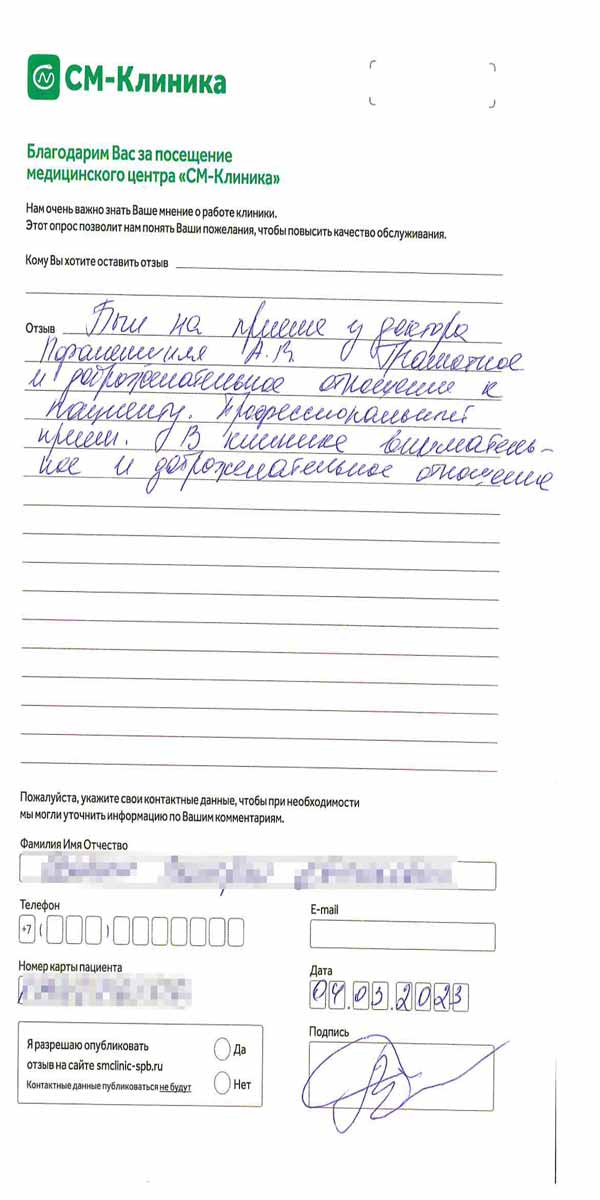 СМ-Клиника
Благодарим Вас за посещение
медицинского центра «СМ-Клиника»
Нам очень важно знать Ваше мнение о работе клиники.
Этот опрос позволит нам понять Ваши пожелания, чтобы повысить качество обслуживания.
Кому Вы хотите оставить отзыв
Отзыв Был на приеме у доктора
А.В. Грамотное
и доброжелательное отношение к
пациенту. Профессиональный
прием. В клинике вниматель-
ное и доброжелательное отношение
Пожалуйста, укажите свои контактные данные, чтобы при необходимости
мы могли уточнить информацию по Вашим комментариям.
Фамилия Имя Отчество
Телефон
E-mail
+7 ( )
Номер карты пациента
Дата
04.03.2023
Я разрешаю опубликовать
отзыв на сайте smclinic-spb.ru
Контактные данные публиковаться не будут
Да
Нет
Подпись